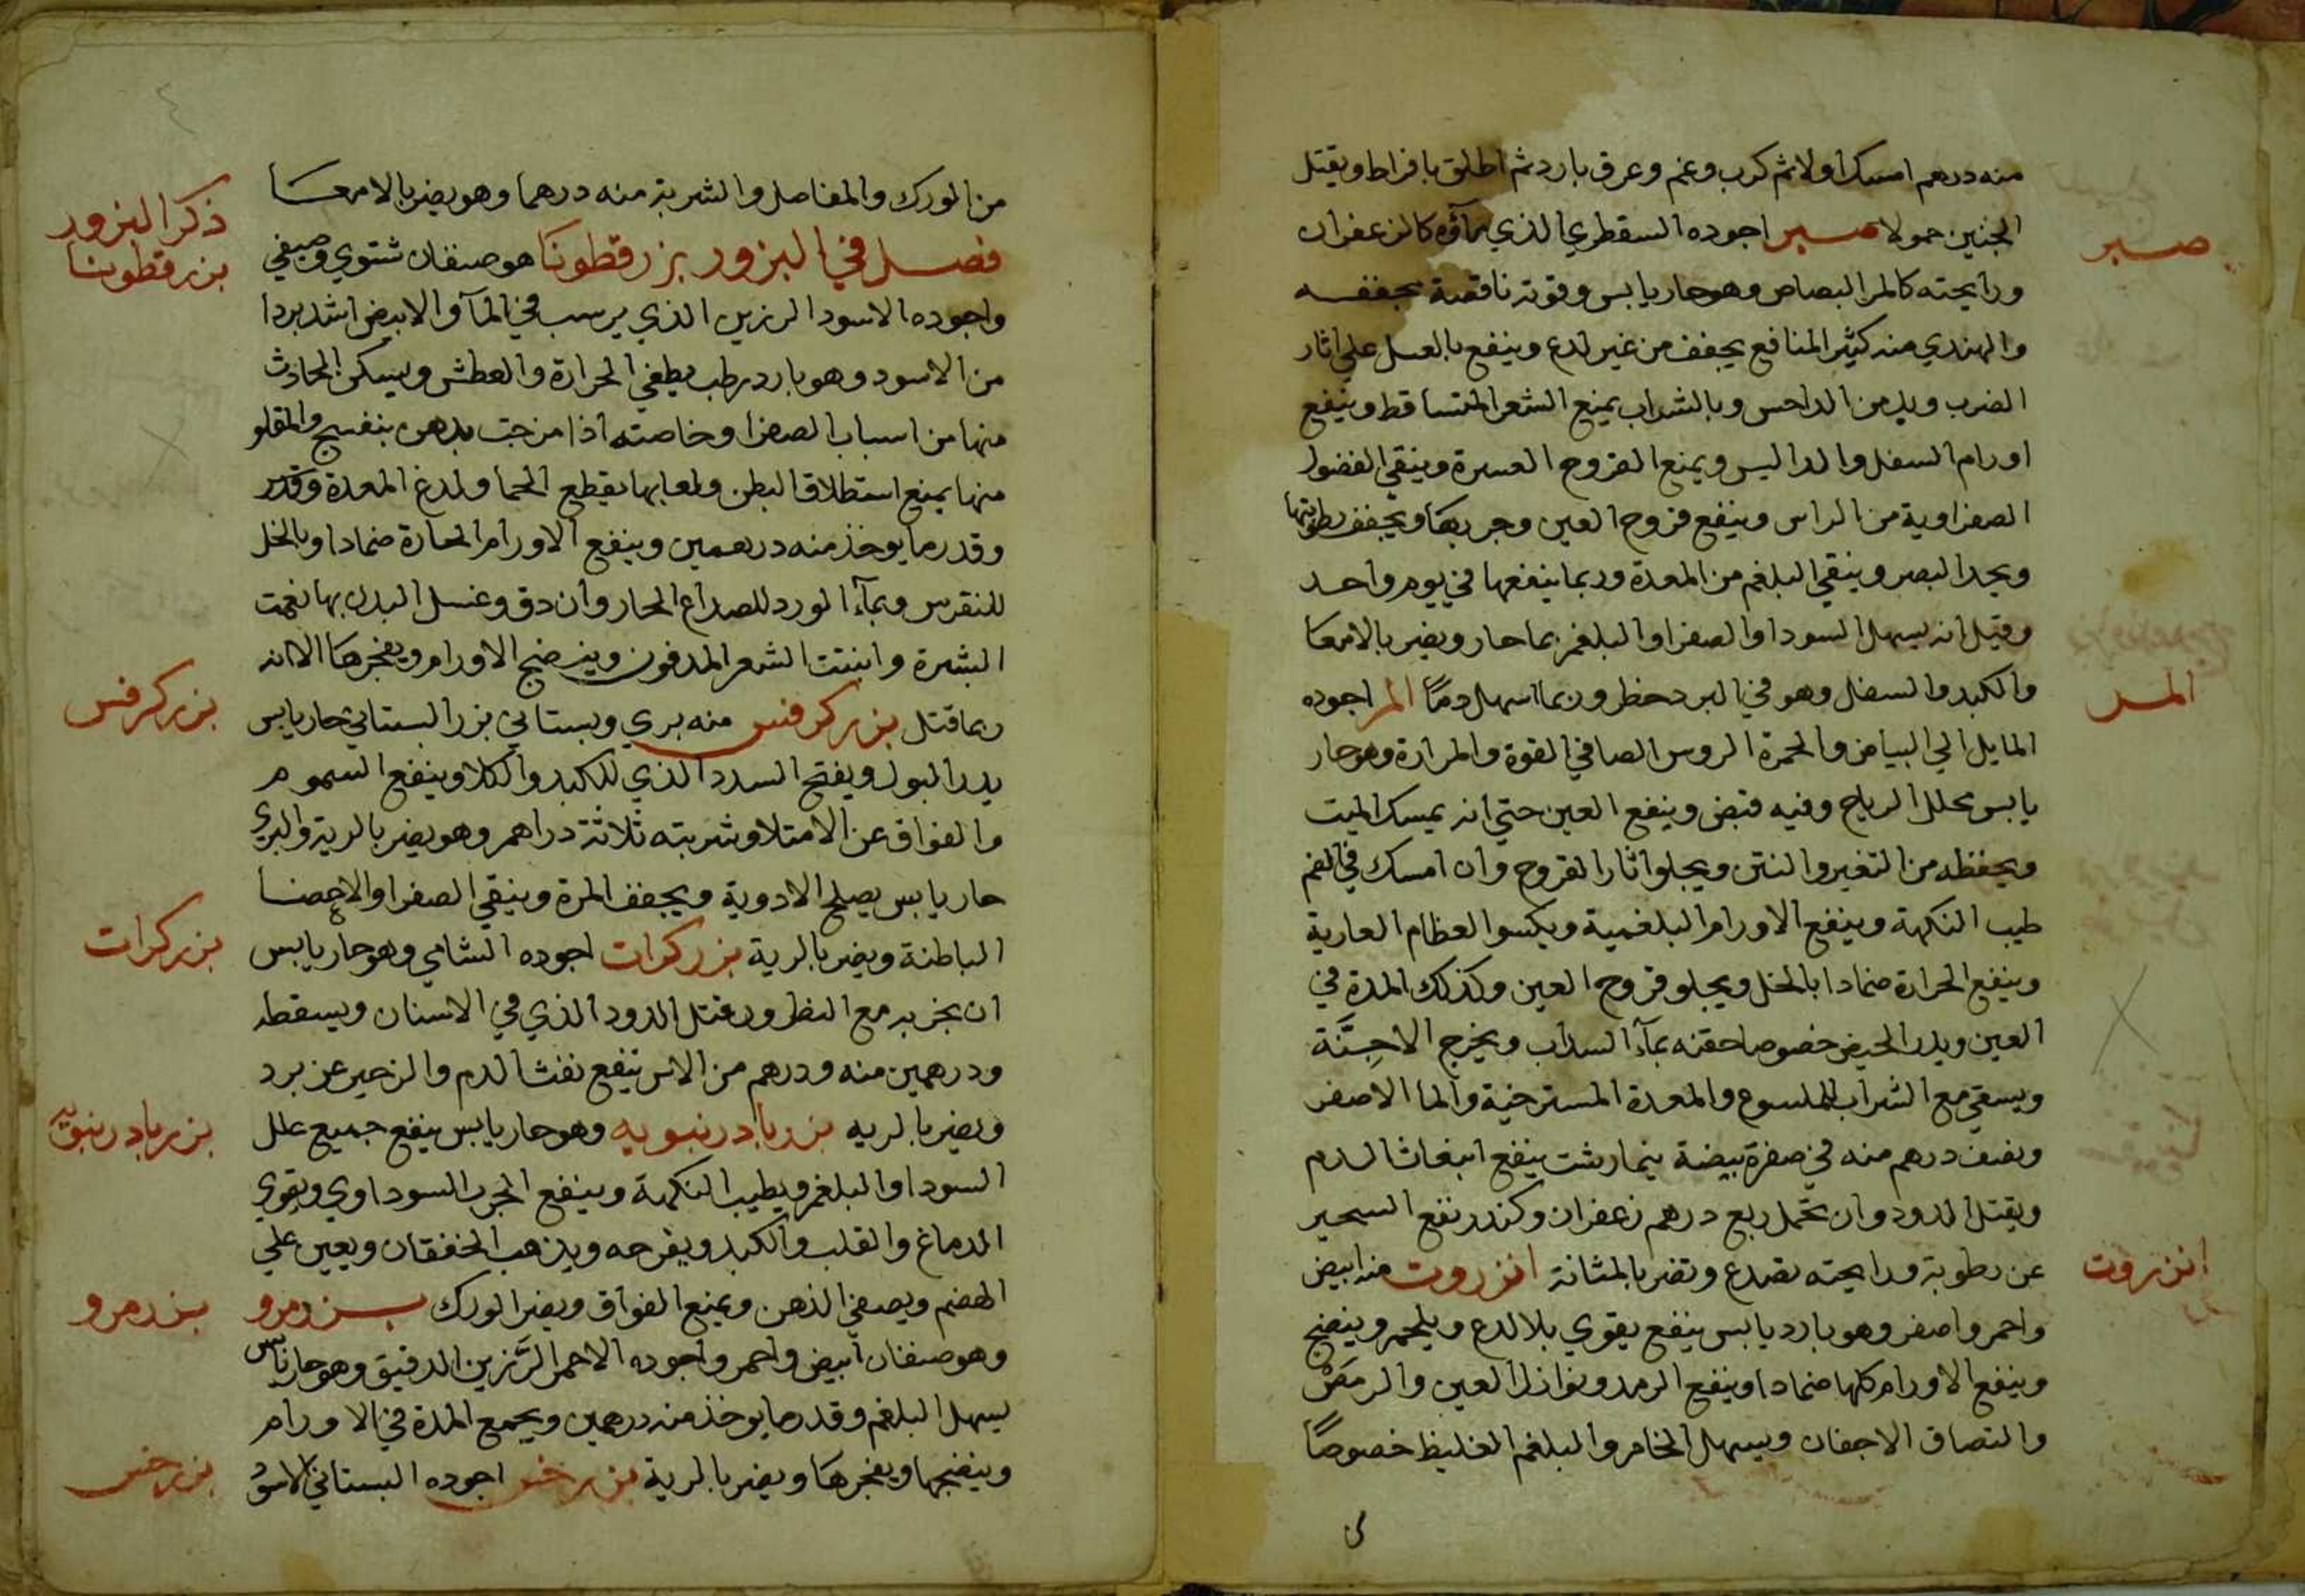 منه درهم امسك اولا ثم كرب وغم وعرق بارد ثم اطلق بافراط ويقتل
الجنين حمولا صبر اجوده السقطري الذي مآؤه كالزعفران
صبر
ورايحته كالمر البصاص وهو حار يابس وقوته ناقصة مجففه
والهندي منه كثير المنافع يجفف من غير لدع وينفع بالعسل علي اثار
الضرب ويدمن الداحس وبالشراب يمنع الشعر المتساقط وينفع
اورام السفل والداليس ويمنع القروح العسرة وينقي الفضول
الصفراوية من الراس وينفع قروح العين وجربها ويجفف رطوبتها
ويحد البصر وينقي البلغم من المعدة وربما ينفعها في يوم واحد
وقيل انه يسهل السودا والصفرا والبلغم بما حار ويضر بالامعا
والكبد والسفل وهو في البرد خطر وربما اسهل دمًا المر اجوده
المر
المايل الي البياض والحمرة الروس الصافي القوة والمرارة وهو حار
يابس محلل الرياح وفيه قبض وينفع العين حتي انه يمسك الميت
ويحفظه من التغير والنتن ويجلوا ثار القروح وان امسك في الفم
طيب النكهة وينفع الاورام البلغمية ويكسوا العظام العارية
وينفع الحرارة ضمادا بالخل ويجلو قروح العين وكذلك المدة في
العين ويدر الحيض خصوصا حقنه بمآء السداب ويخرج الاجنّة
ويسقي مع الشراب للملسوع والمعدة المسترخية والما الاصفر
ونصف درهم منه في صفرة بيضة نيمارشت ينفع انبعاث الدم
ويقتل الدود وان تحمل ربع درهم زعفران وكندر نفع السحير
عن رطوبة ورايحته تصدع وتضر بالمثانة انزروت منه ابيض
انزروت
واحمر واصفر وهو بارد يابس ينفع يقوي بلا لدع ويلحم وينضج
وينفع الاورام كلها ضمادا وينفع الرمد ونوازل العين والرمص
والتصاق الاجفان ويسهل الخام والبلغم الغليظ خصوصًا
من الورك والمفاصل والشربة منه درهما وهو يضر بالامعا
ذكر البزور
فصل في البزور بزرقطونا هو صنفان شتوي وصيفي
بزرقطونا
واجوده الاسود الرزين الذي يرسب في المآء والابيض اشد بردا
من الاسود وهو بارد رطب يطفي الحرارة والعطش ويسكن الحادث
منها من اسباب الصفرا وخاصته اذا مزجت بدهن بنفسج والمقلو
منها يمنع استطلاق البطن ولعابها يقطع الحما ولدغ المعدة وقدر
وقدر ما يوخذ منه درهمين وينفع الاورام الحارة ضمادا وبالخل
للنقرس وبمآء الورد للصداع الحار وان دق وغسل البدن بها نعمت
البشرة وانبتت الشعر المدفون وينضج الاورام ويفجرها الا انه
ربما قتل بزركرفس منه بري وبستاني بزر البستاني حار يابس
بزركرفس
يدر البول ويفتح السدد الذي للكبد والكلا وينفع السموم
والفواق عن الامتلا وشربته ثلاثة دراهم وهو يضر بالرية والبري
حار يابس يصلح الادوية ويجفف المرة وينقي الصفرا والاعضا
الباطنة ويضر بالرية بزركرات اجوده الشامي وهو حار يابس
بزركرات
ان بخر به مع القطرون قتل الدود الذي في الاسنان ويسقطه
ودرهمين منه ودرهم من الاس ينفع نفث الدم والزحير عن برد
ويضر بالريه بزربادرنبويه وهو حار يابس ينفع جميع علل
بزربادرنبويه
السودا والبلغم ويطيب النكهة وينفع الجرب السوداوي ويقوي
الدماغ والقلب والكبد ويفرحه ويذهب الخفقان ويعين علي
الهضم ويصفي الذهن ويمنع الفواق ويضر الورك بزرمرو
بزرمرو
وهو صنفان ابيض واحمر واجوده الاحمر الرَّزين الدقيق وهو حار يابس
يسهل البلغم وقدر ما يوخذ منه درهمين ويجمع المدة في الاورام
وينضجها ويفجرها ويضر بالرية بزرخس اجوده البستاني الاسود
بزرخس